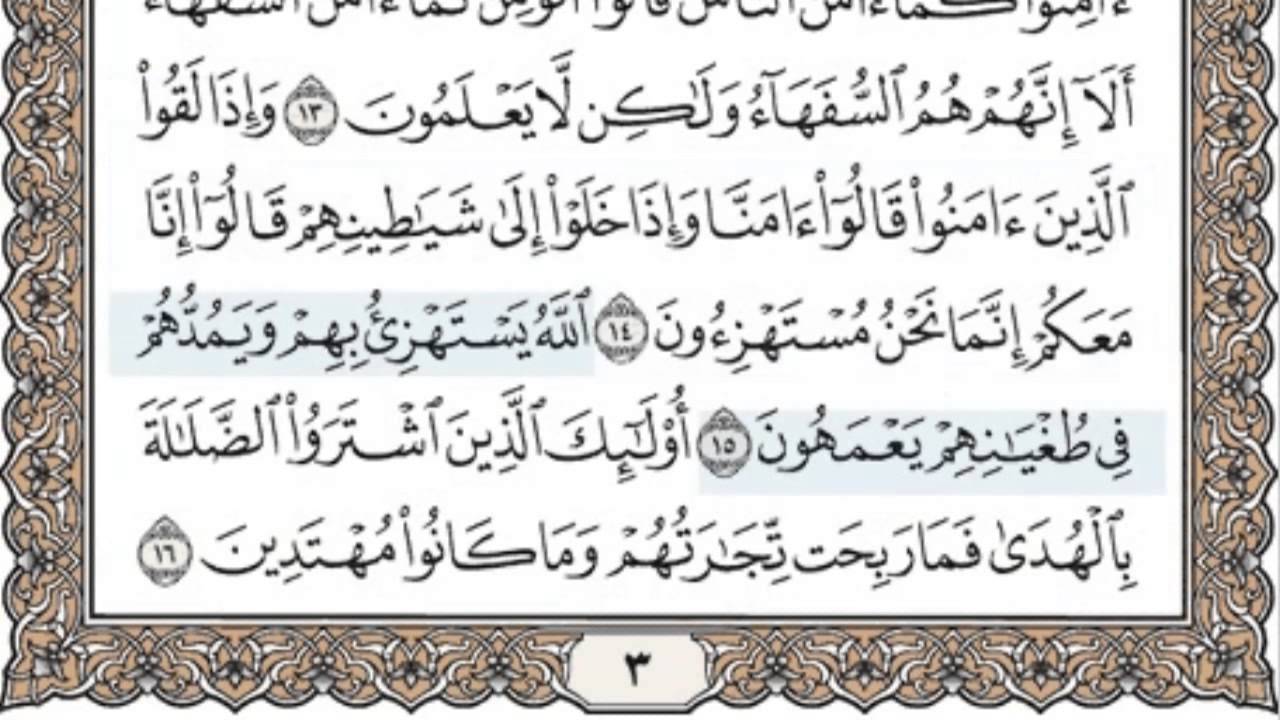 ءَامِنُوا۟ كَمَآ ءَامَنَ ٱلنَّاسُ قَالُوٓا۟ أَنُؤْمِنُ كَمَآ ءَامَنَ ٱلسُّفَهَآءُ
أَلَآ إِنَّهُمْ هُمُ ٱلسُّفَهَآءُ وَلَٰكِن لَّا يَعْلَمُونَ ١٣ وَإِذَا لَقُوا۟
ٱلَّذِينَ ءَامَنُوا۟ قَالُوٓا۟ ءَامَنَّا وَإِذَا خَلَوْا۟ إِلَىٰ شَيَٰطِينِهِمْ قَالُوٓا۟ إِنَّا
مَعَكُمْ إِنَّمَا نَحْنُ مُسْتَهْزِءُونَ ١٤ ٱللَّهُ يَسْتَهْزِئُ بِهِمْ وَيَمُدُّهُمْ
فِى طُغْيَٰنِهِمْ يَعْمَهُونَ ١٥ أُو۟لَٰٓئِكَ ٱلَّذِينَ ٱشْتَرَوُا۟ ٱلضَّلَٰلَةَ
بِٱلْهُدَىٰ فَمَا رَبِحَت تِّجَٰرَتُهُمْ وَمَا كَانُوا۟ مُهْتَدِينَ ١٦
٣